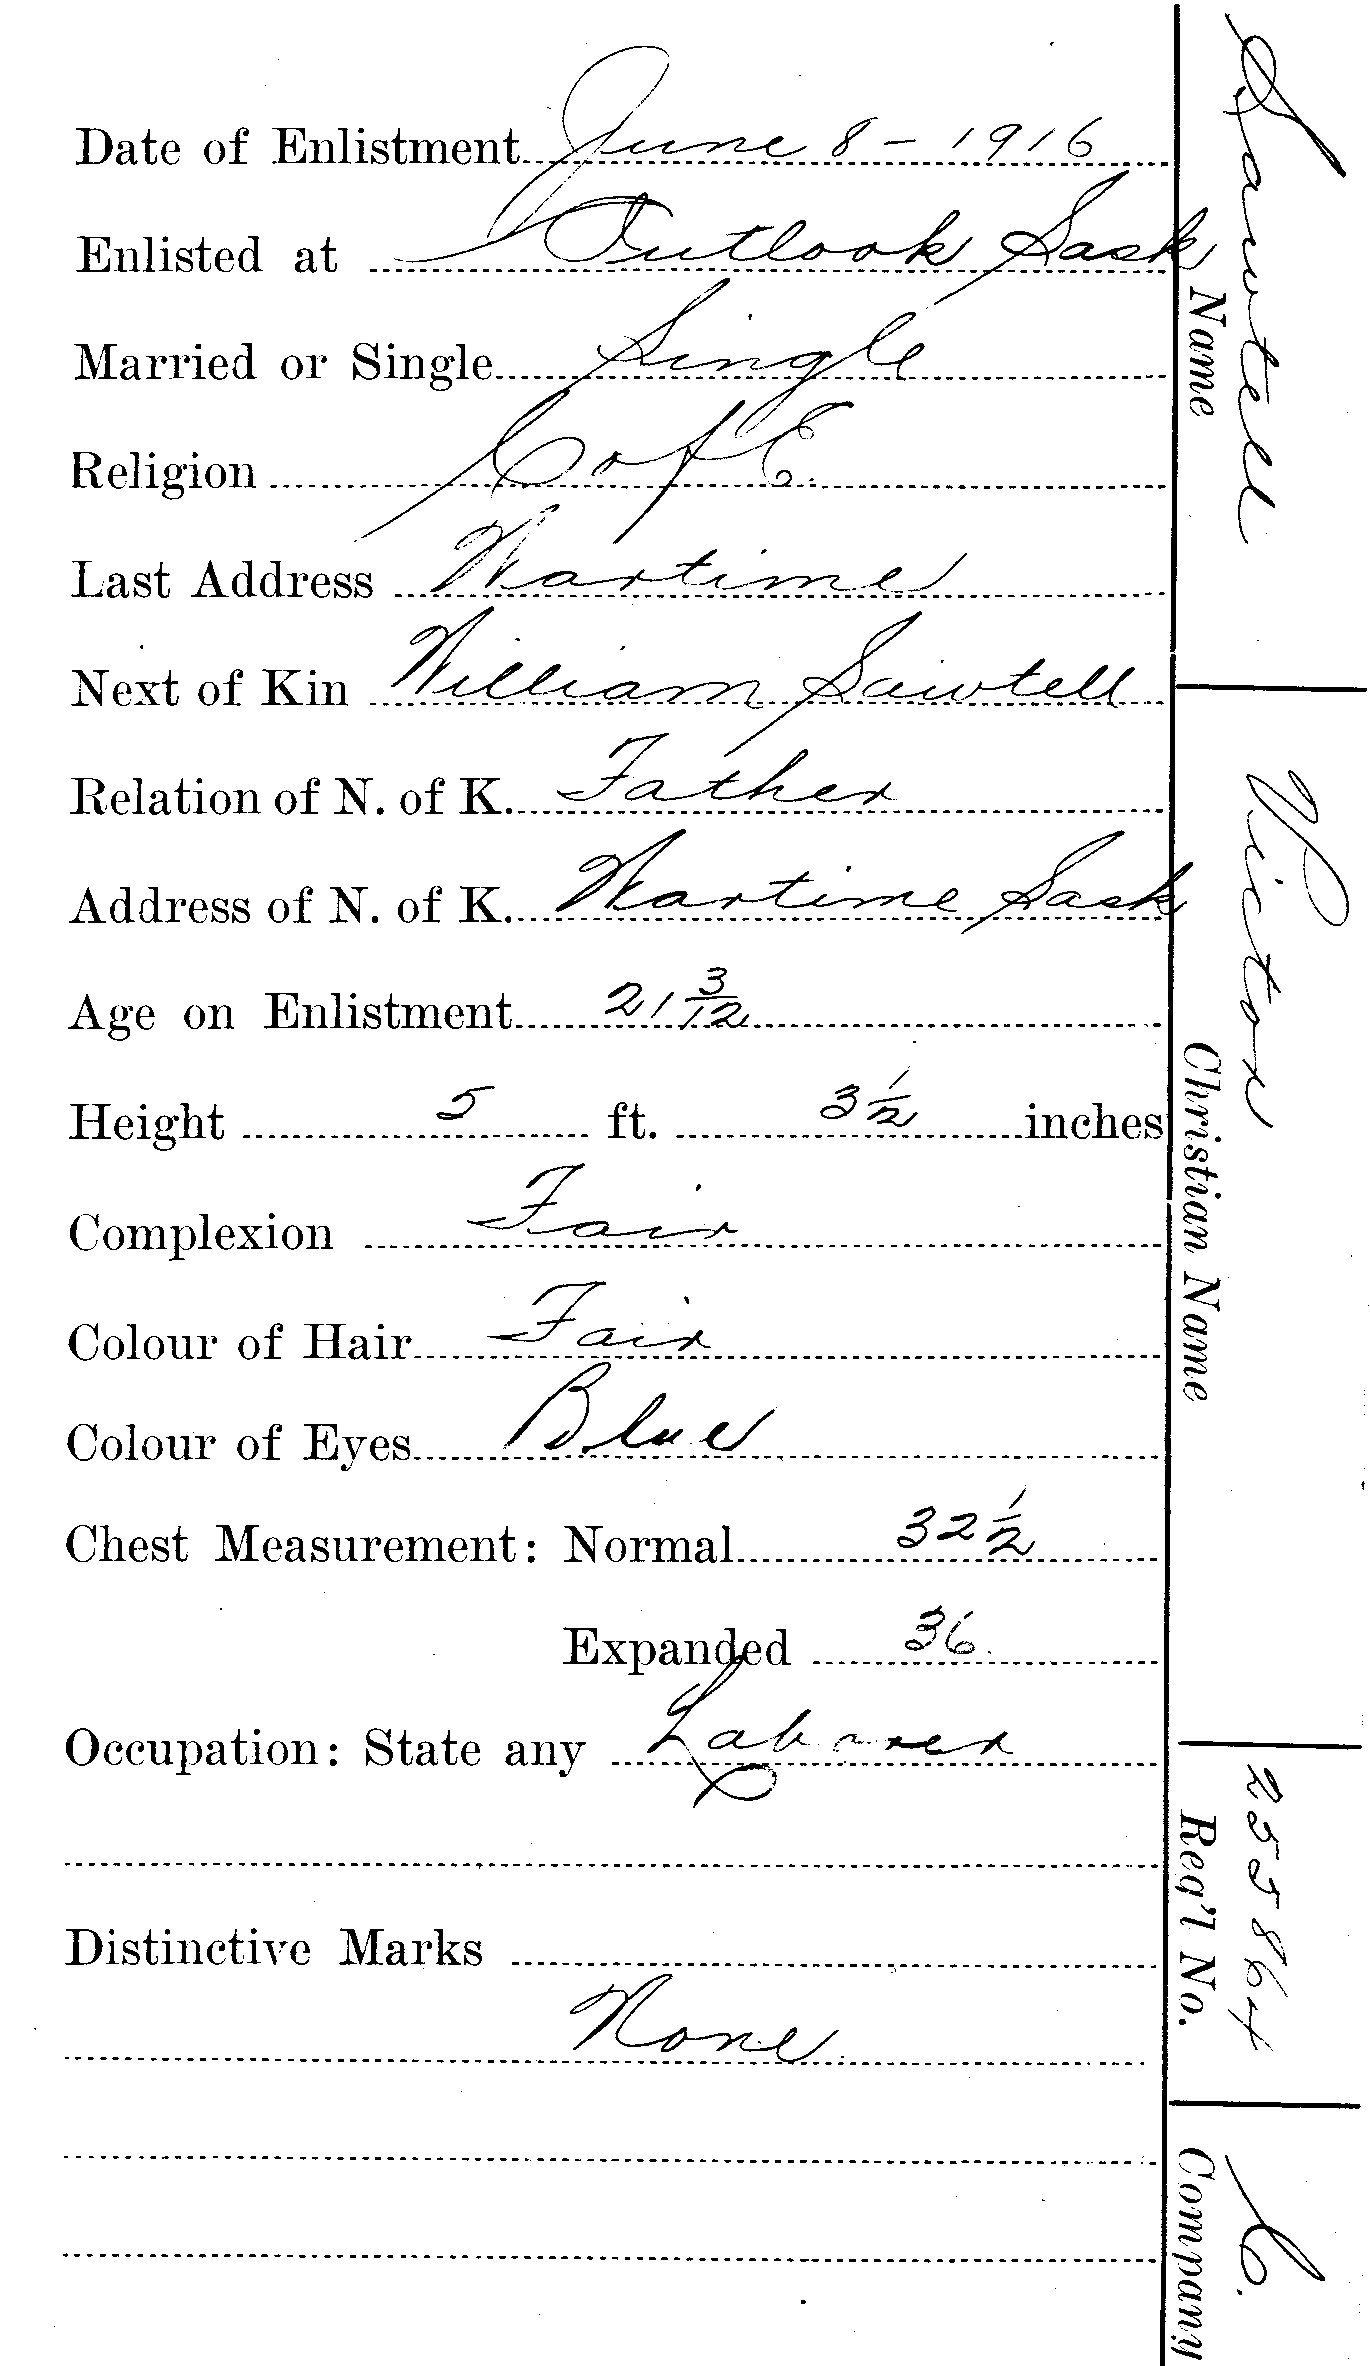 Date of Enlistment June 8 - 1916
Enlisted at Outlook Sask
Married or Single Single
Religion C of E.
Last Address Wartime
Next of Kin William Sawtell
Relation of N. of K. Father
Address of N. of K. Wartime Sask
Age on Enlistment 21 3/12
Height 5 ft. 3 1/2 inches
Complexion Fair
Colour of Hair Fair
Colour of Eyes Blue
Chest Measurement: Normal 32 1/2
Expanded 36
Occupation: State any Laborer
Distinctive Marks
None
Sawtell
Name
Victor
Christian Name
255864
Reg'l No.
C.
Company